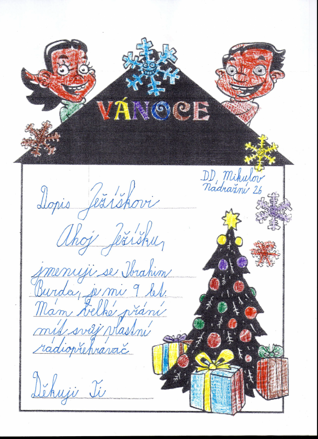 VÁNOCE
DD Mikulov
Nádražní 26
Dopis Ježíškovi
Ahoj Ježíšku,
jmenuji se Ibrahim
Burda, je mi 9 let.
Mám velké přání
mít svůj vlastní
rádiopřehrávač
Děkuji Ti